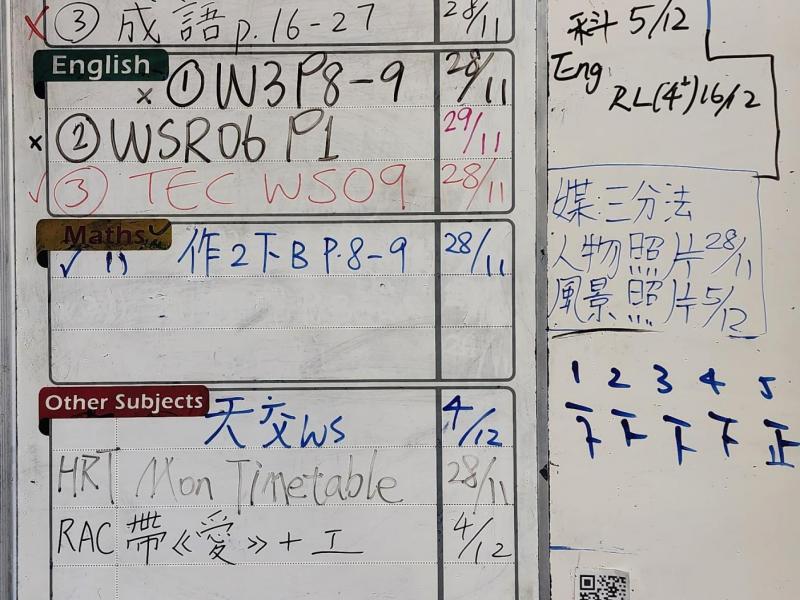 ③ 成語 p.16-27 28/11
English
① W3P8-9 28/11
② WSR06 P1 29/11
③ TEC WS09 28/11
Maths
作2下B P.8-9 28/11
Other Subjects
WS 4/12
HRT Mon Timetable 28/11
RAC 帶《愛》+工 4/12
科 5/12
Eng
RL(4) 16/12
媒:三分法
人物照片 28/11
風景照片 5/12
1 2 3 4 5
下 下 下 下 正